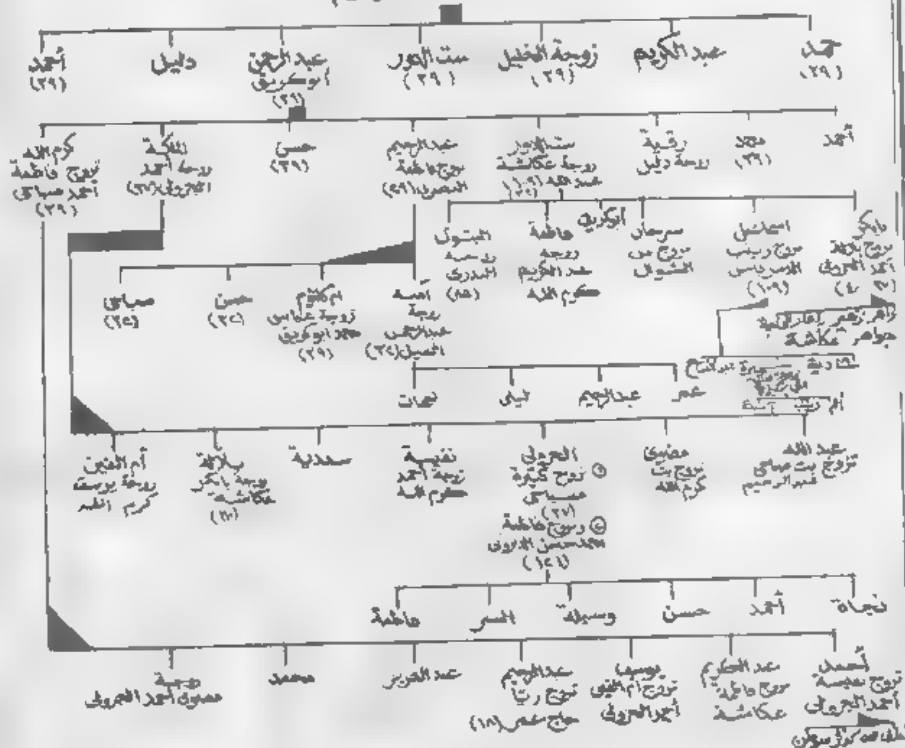 حمد
(٢٩)
عبد الكريم
زوجة الخليل
(٢٩)
ست الدور
(٢٩)
عبد الرحمن
أبو كريق
(٢٩)
دليل
أحمد
(٢٩)
أحمد
محمد
(٢٩)
رقية
زوجة دليل
ست الدور
زوجة عكاشة
عبد الله
عبد الرحيم
تزوج فاطمة
حسن
(٢٩)
الملكة
زوجة أحمد
الجزولى (٢٧)
كرم الله
تزوج فاطمة
أحمد صباحى
(٢٩)
بابكر
تزوج بلالة
أحمد الجزولى
اسماعيل
تزوج زينب
(١٠٩)
سرحان
تزوج من
الشوال
أبو كريق
فاطمة
زوجة
عبد الكريم
كرم الله
البتول
زوجة
البدرى
آمنة
زوجة
عبد الرحمن
أم كلثوم
زوجة عباس
محمد أبو كريق
(٢٩)
حسن
صباحى
جواهر عكاشة
عمر
عبد الرحيم
ليلى
نجات
عبد الله
تزوج بت صباحى
عبد الرحيم
تزوج بت
كرم الله
الجزولى
١ تزوج
صباحى
(٢٧)
٢ وتزوج فاطمة
محمد حسن الجزولى
(١٢١)
نفيسة
زوجة أحمد
كرم الله
سعدية
بلالة
زوجة بابكر
عكاشة
أم الفين
زوجة يوسف
كرم الله
نجاة
أحمد
حسن
وسيلة
السر
فاطمة
أحمد
تزوج نفيسة
أحمد الجزولى
عبد الكريم
تزوج فاطمة
عكاشة
يوسف
تزوج أم الفين
أحمد الجزولى
عبد الرحيم
تزوج ريا
حاج عمر (١٨)
عبد العزيز
محمد
زوجة
أحمد الجزولى